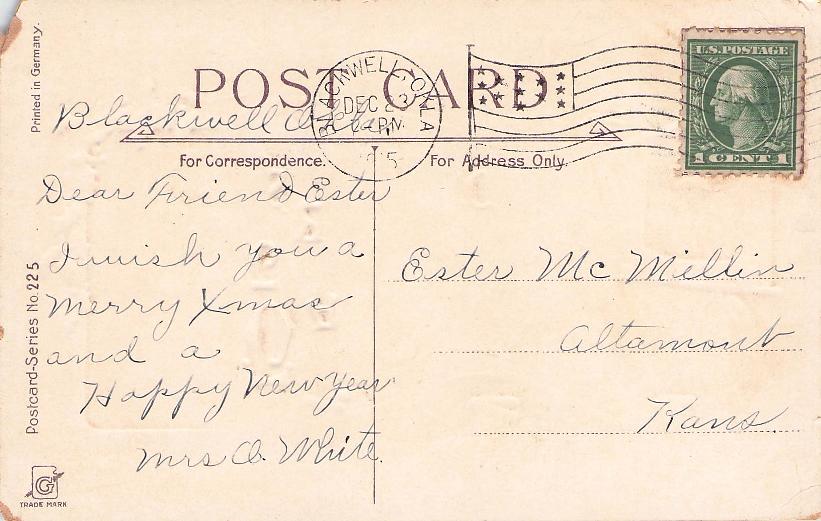 Printed in Germany.
POST CARD
BLACKWELL, OKLA
DEC 23
PM
U.S. POSTAGE
1 CENT 1
For Correspondence.
For Address Only.
Blackwell Okla
Dear Friend Ester
I wish you a
Merry Xmas
and a
Happy New Year
Mrs O. White.
Ester Mc Millin
Altamont
Kans.
Postcard-Series No. 225
G
TRADE MARK